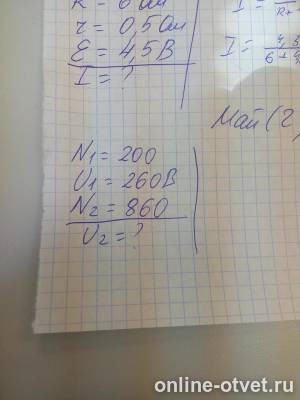 R = 6 Ом
r = 0,5 Ом
ℰ = 4,5 В
I = ?
I =
R+
I = 4,5
6+
Май (2
N1 = 200
U1 = 260В
N2 = 860
U2 = ?
online-otvet.ru